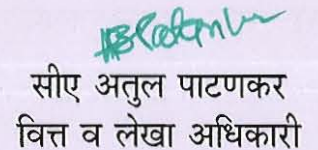 सीए अतुल पाटणकर
वित्त व लेखा अधिकारी